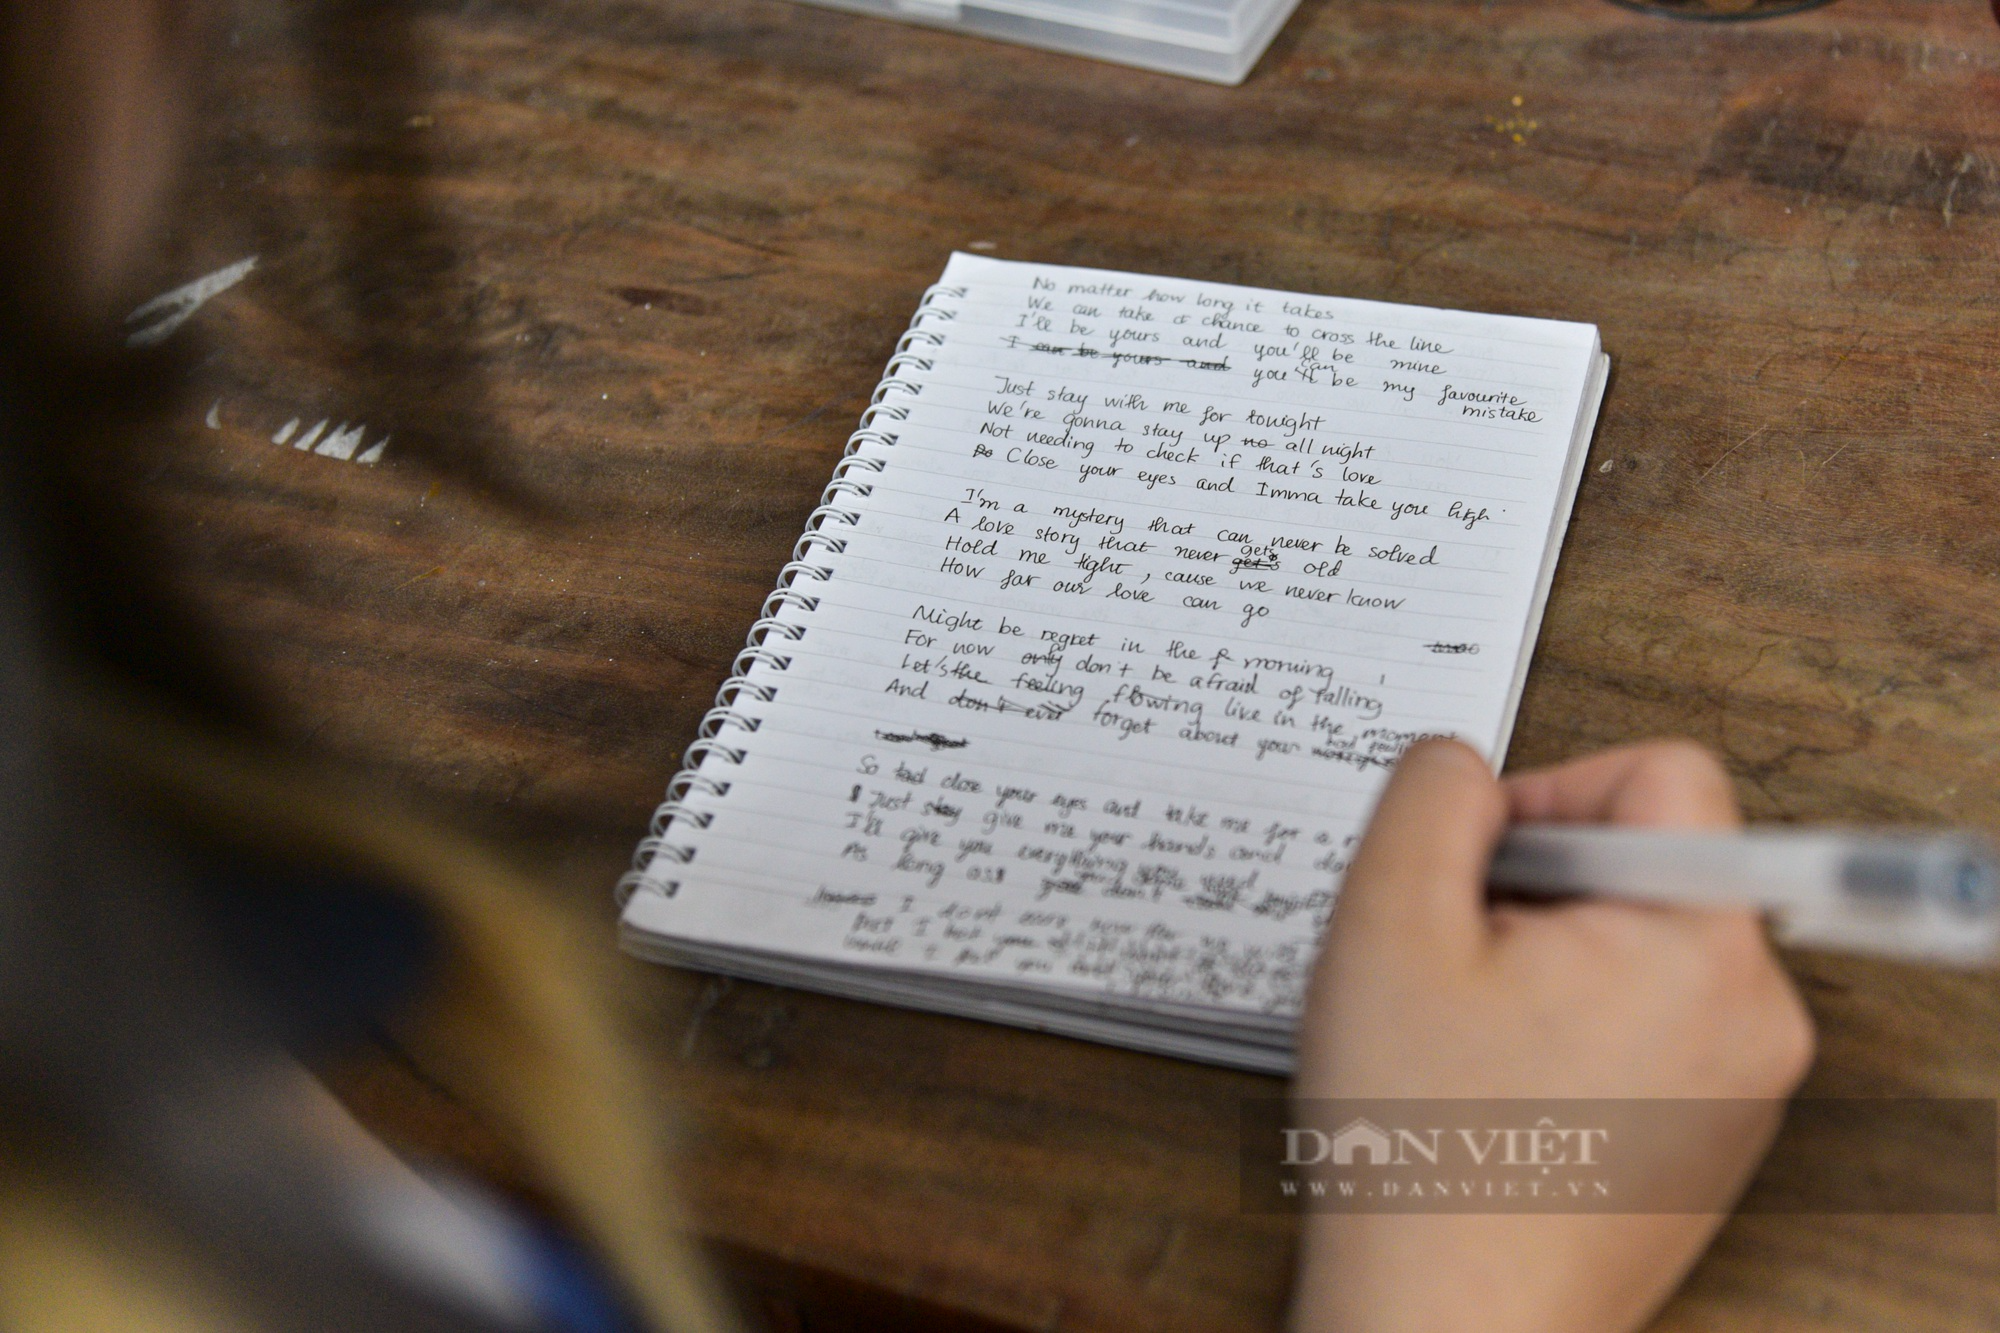 No matter how long it takes
We can take a chance to cross the line
I'll be yours and you'll be mine
I can be yours and you'll can be my favourite
mistake
Just stay with me for tonight
We're gonna stay up no all night
Not needing to check if that's love
So Close your eyes and Imma take you high
I'm a mystery that can never be solved
A love story that never get's gets old
Hold me tight, cause we never know
How far our love can go
Might be regret in the morning
For now only don't be afraid of falling
Let's the feeling flowing live in the moment
And don't ever forget about your
So close your eyes and take me for a
Just stay give me your hands and
I'll give you everything you
As long as you don't
I don't
DÂN VIỆT
WWW.DANVIET.VN